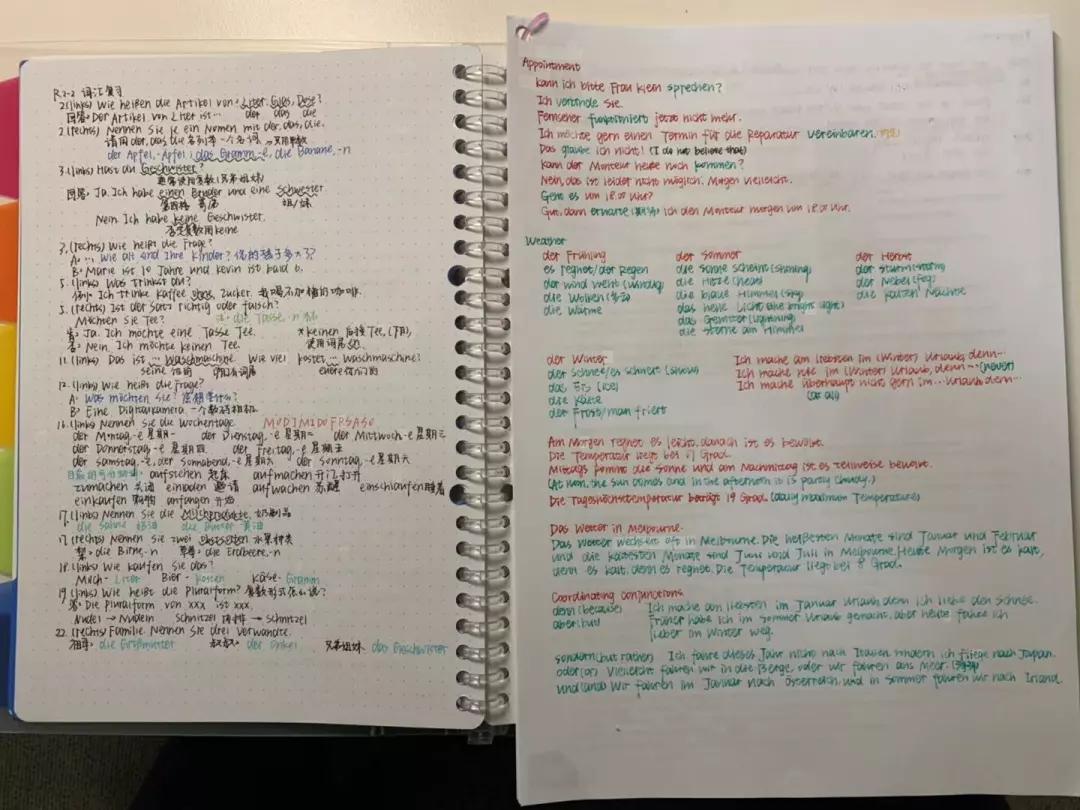 R2-2 词汇复习
2.(links) Wie heißen die Artikel von: Liter, Glas, Dose?
回答: Der Artikel von Liter ist... der das die
2.(rechts) Nennen Sie je ein Nomen mit der, das, die.
请用der, das, die各列举一个名词
der Apfel, -Äpfel, das Gramm, -e, die Banane, -n
3.(links) Hast du Geschwister?
回答: Ja. Ich habe einen Bruder und eine Schwester
第四格 哥弟 姐/妹
Nein. Ich habe keine Geschwister.
否定复数用keine
3.(rechts) Wie heißt die Frage?
A: ... Wie alt sind Ihre Kinder? 你的孩子多大了?
B: Marie ist 10 Jahre und Kevin ist bald 6.
5.(links) Was trinkst du?
例: Ich trinke Kaffee ohne Zucker. 我喝不加糖的咖啡.
5.(rechts) Ist der Satz richtig oder falsch?
Möchten Sie Tee?
答: Ja. Ich möchte eine Tasse Tee.
否: Nein. Ich möchte keinen Tee.
11.(links) Das ist ... Waschmaschine. Wie viel kostet ... Waschmaschine?
seine 他的 eure 你们的
12.(links) Wie heißt die Frage?
A: Was möchten Sie?
B: Eine Digitalkamera. 一个数码相机.
16.(links) Nennen Sie die Wochentage. MODIMIDOFRSASO
der Montag, -e 星期一 der Dienstag, -e 星期二 der Mittwoch, -e 星期三
der Donnerstag, -e 星期四 der Freitag, -e 星期五
der Samstag, -e, der Sonnabend, -e 星期六 der Sonntag, -e 星期天
aufstehen 起床 aufmachen 开门,打开
zumachen 关闭 einladen 邀请 aufwachen 苏醒 einschlafen 睡着
einkaufen 购物 anfangen 开始
17.(links) Nennen Sie die Milchprodukte. 奶制品
die Sahne 奶油 die Butter 黄油
17.(rechts) Nennen Sie zwei Obstsorten 水果种类
梨: die Birne, -n 草莓: die Erdbeere, -n
18.(links) Wie kaufen Sie das?
Milch - Liter Bier - Kasten Käse - Gramm
19.(links) Wie heißt die Pluralform? 复数形式怎么说?
答: Die Pluralform von xxx ist xxx.
Nudel → Nudeln Schnitzel → Schnitzel
22.(rechts) Familie. Nennen Sie drei Verwandte.
祖母: die Großmutter 叔叔: der Onkel 兄弟姐妹 das Geschwister
Appointment
Kann ich bitte Frau Klein sprechen?
Ich verbinde Sie.
Fernseher funktioniert jetzt nicht mehr.
Ich möchte gern einen Termin für die Reparatur vereinbaren.
Das glaube ich nicht! (I do not believe that)
Kann der Monteur heute noch kommen?
Nein, das ist leider nicht möglich. Morgen vielleicht.
Geht es um 18.00 Uhr?
Gut, dann erwarte (期待) ich den Monteur morgen um 18.00 Uhr.
Weather
der Frühling der Sommer der Herbst
es regnet/der Regen die Sonne scheint (shining) der Sturm (storm)
der Wind weht (windig) die Hitze (heat) der Nebel (fog)
die Wolken (多云) die blaue Himmel (sky) die kalten Nächte
die Wärme das helle Licht (the bright light)
das Gewitter (lightning)
die Sterne am Himmel
der Winter Ich mache am liebsten im (Winter) Urlaub, denn...
der Schnee/es schneit (snows) Ich mache nie im (Winter) Urlaub, denn... (never)
das Eis (ice) Ich mache überhaupt nicht gern im... Urlaub, denn...
die Kälte (at all)
der Frost/man friert
Am Morgen regnet es leicht, danach ist es bewölkt.
Die Temperatur liegt bei 17 Grad.
Mittags kommt die Sonne und am Nachmittag ist es teilweise bewölkt.
(At noon, the sun comes and in the afternoon it is partly cloudy.)
Die Tageshöchsttemperatur beträgt 19 Grad. (daily maximum Temperature)
Das Wetter in Melbourne.
Das Wetter wechselt oft in Melbourne. Die heißesten Monate sind Januar und Februar
und die kältesten Monate sind Juni und Juli in Melbourne. Heute Morgen ist es kalt,
denn es kalt, denn es regnet. Die Temperatur liegt bei 8 Grad.
Coordinating conjunctions
denn (because) Ich mache am liebsten im Januar Urlaub, denn ich liebe den Schnee.
aber (but) Früher habe ich im Sommer Urlaub gemacht, aber heute fahre ich
lieber im Winter weg.
sondern (but rather) Ich fahre dieses Jahr nicht nach Italien sondern ich fliege nach Japan.
oder (or) Vielleicht fahren wir in die Berge, oder wir fahren ans Meer.
und (and) Wir fahren im Januar nach Österreich, und in Sommer fahren wir nach Irland.